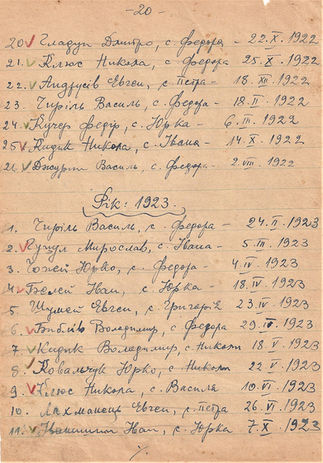 - 20 -
20 ✓ Гладун Дмитро, с. Федора - 22. X. 1922
21. ✓ Клюс Никола, с. Федора 25. X. 1922
22. ✓ Андрусів Евген, с. Петра - 18. XII. 1922
23. Чиріль Василь, с. Федора - 18. II. 1922
24. ✓ Кучер Федір, с. Юрка - 6. III. 1922
25 ✓ Кидик Никола, с. Івана - 14. X. 1922
Василь, с. Федора - 2. VIII. 1922
Рік: 1923.
1. Чиріль Василь, с. Федора - 24. II. 1923
2. ✓ Мирослав, с. Івана - 5. III. 1923
3. Юрко, с. Федора - 4. IV 1923
4 ✓ Іван, с. Юрка - 18. IV 1923
5. Шумей Евген, с. Григорія 23. IV. 1923
6 ✓ Володимир, с. Федора 29. IV. 1923
7 ✓ Кидик Володимир, с. Николи 18 V. 1923
8. Ковальчук Юрко, с. Николи 22 V 1923
9. ✓ Клюс Никола, с. Василя 10. VI. 1923
10. Лахманець Евген, с. Петра 26. VI. 1923
11. ✓ Іван, с. Юрка 7. X. 1923